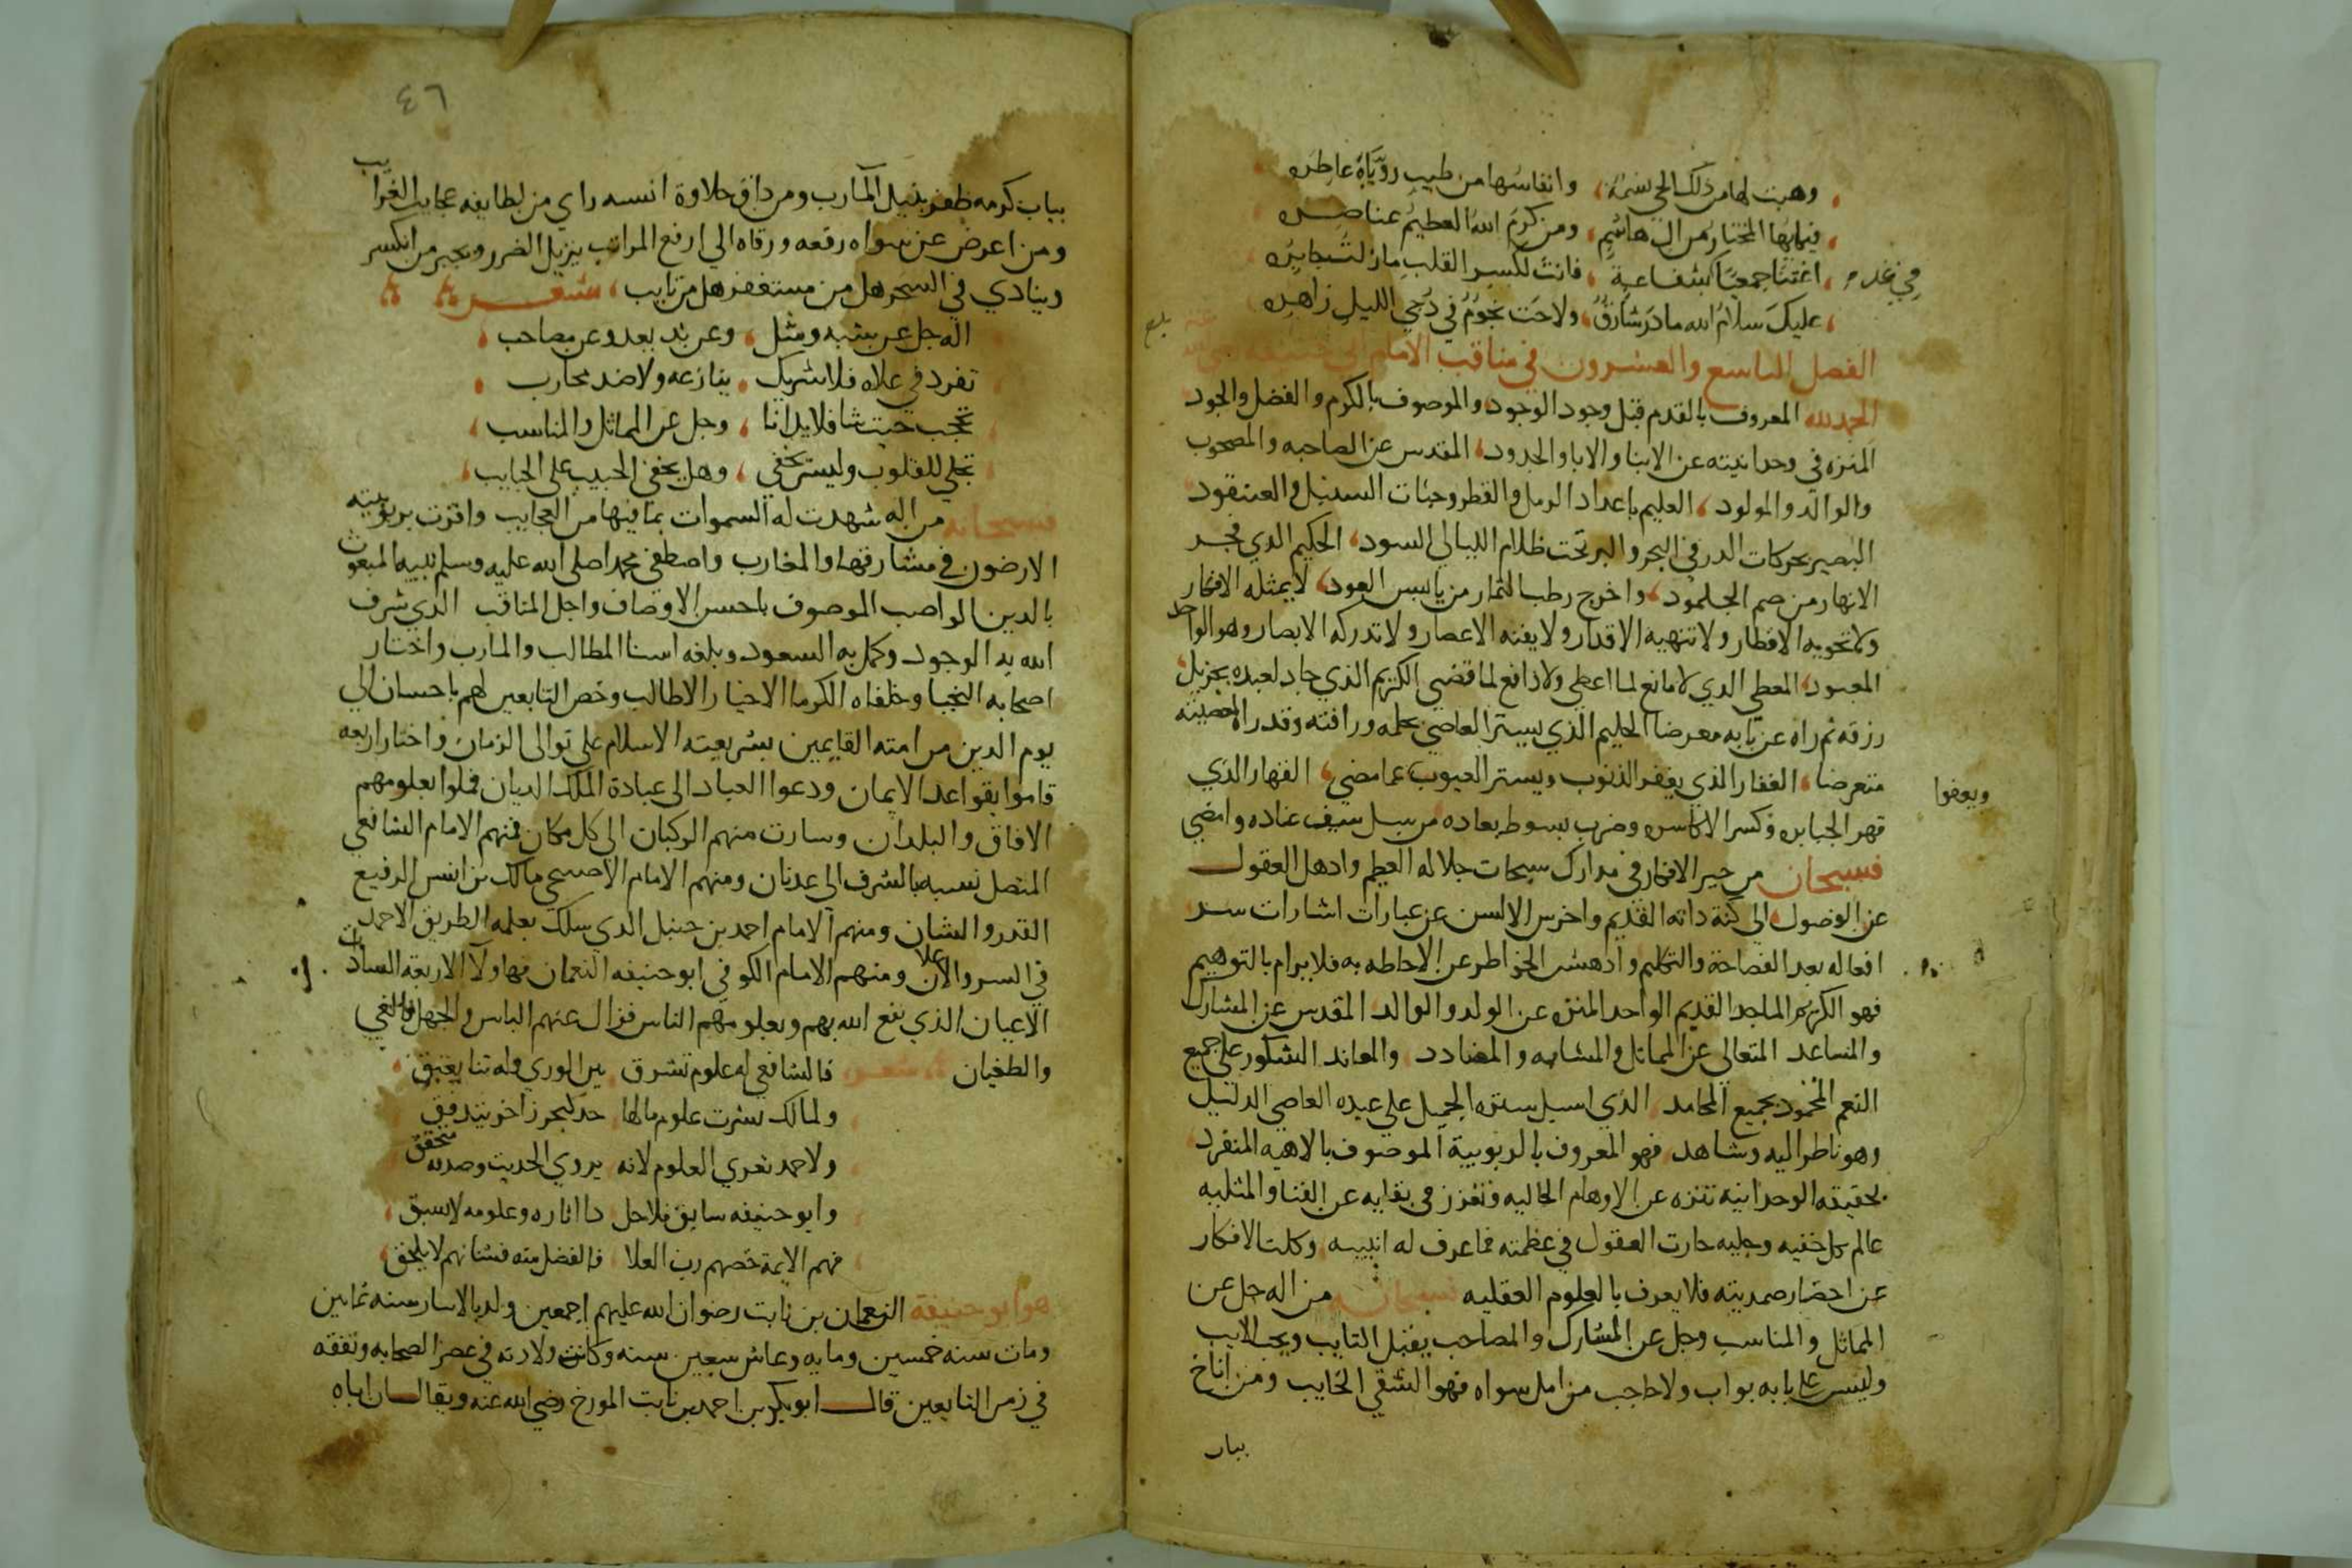 وهبت لها من ذلك الحي نسمة، وانفاسها من طيب رؤياه عاطره
فيا ايها المختار من ال هاشم، ومن كرم الله العظيم عناصره
في غد م
، اغثنا جمعيا كشفاعة، فانت لكسير القلب مازلت جابره
، عليك سلام الله ما ذر شارق، ولاحت نجوم في دجي الليل زاهره
الفصل التاسع والعشرون في مناقب الامام ابي حنيفه
الحمد لله المعروف بالقدم قبل وجود الوجود والموصوف بالكرم والفضل والجود
المنزه في وحدانيته عن الابنا والابا والجدود، المقدس عن الصاحبه والمصحوب
والوالد والمولود، العليم باعداد الرمل والقطر وحبات السنبل والعنقود
البصير بحركات الدر في البحر والبر تحت ظلام الليالي السود، الحكيم الذي فجر
الانهار من صم الجلمود، واخرج رطب الثمار من يابس العود، لا يمثله الافكار
ولا تحويه الاقطار ولا تنهيه الاقدار ولا يفنه الاعصار ولا تدركه الابصار وهو الواحد
المعبود، المعطي الذي لا مانع لما اعطي ولا دافع لما قضي الكريم الذي جاد لعبده بجزيل
رزقه ثم راه عن بابه معرضا الحليم الذي يستر العاصي بحلمه ورافته وقد راه لمعصيته
متعرضا، الغفار الذي يغفر الذنوب ويستر العيوب عما مضي، القهار الذي
ويعفوا
قهر الجبابره وكسر الاكاسره وضرب بسوط بعاده من سل سيف عناده وامضي
فسبحان من حير الافكار في مدارك سبحات جلاله العظيم واذهل العقول
عن الوصول الى كنه ذاته القديم واخرس الالسن عن عبارات اشارات سر
افعاله بعد الفصاحة والتكليم وادهش الخواطر عن الاحاطه به فلا يرام بالتوهيم
فهو الكريم الماجد القديم الواحد المنزه عن الولد والوالد المقدس عن المشارك
والمساعد المتعالى عن المماثل والمشابه والمضادد والمعاند الشكور على جميع
النعم المحمود بجميع المحامد الذي اسبل ستره الجميل علي عبده العاصي الدليل
وهو ناظر اليه وشاهد فهو المعروف بالربوبية الموصوف بالاهيه المنفرد
بحقيقه الوحدانيه تنزه عن الاوهام الخاليه وتعزز في بقايه عن الفنا والمثليه
عالم كل خفيه وجليه حارت العقول في عظمته فما عرف له اينيه وكلت الافكار
عن احضار صمديته فلا يعرف بالعلوم العقليه سبحانه من اله جل عن
المماثل والمناسب وجل عن المشارك والمصاحب يقبل التايب ويحب الايب
وليس علي بابه بواب ولا حاجب من امل سواه فهو الشقي الخايب ومن اناخ
بباب
٤٦
بباب كرمه ظفر بنيل المآرب ومن ذاق حلاوة انسه راي من لطايفه عجايب الغرايب
ومن اعرض عن سواه رفعه ورقاه الي ارفع المراتب يزيل الضرر ويجبر من انكسر
وينادي في السحر هل من مستغفر هل من تايب، شعر
اله جل عن شبه ومثل، وعن ند يعد وعن مصاحب
تفرد في علاه فلا شريك، ينازعه ولا ضد محارب
تحجب حيث شا فلا يدانا، وجل عن المماثل والمناسب
تجلي للقلوب وليس يخفي، وهل يخفي الحبيب على الحبايب
سبحانه من اله شهدت له السموات بما فيها من العجايب واقرت بربوبيته
الارضون في مشارقها والمغارب واصطفي محمدا صلى الله عليه وسلم نبيه المبعوث
بالدين الواصب الموصوف باحسن الاوصاف واجل المناقب الذي شرف
الله به الوجود وكمل به السعود وبلغه اسنا المطالب والمارب واختار
اصحابه النجبا وخلفاه الكرما الاخيار الاطالب وخص التابعين لهم باحسان الي
يوم الدين من امته القايمين بشريعته الاسلام علي توالي الزمان واختار اربعه
قاموا بقواعد الايمان ودعوا العباد الى عبادة الملك الديان فملوا بعلومهم
الافاق والبلدان وسارت منهم الركبان الى كل مكان فمنهم الامام الشافعي
المتصل نسبه بالشرف الي عدنان ومنهم الامام الاصبحي مالك بن انس الرفيع
القدر والشان ومنهم الامام احمد بن حنبل الذي سلك بعلمه الطريق الاحمد
في السر والاعلان ومنهم الامام الكوفي ابو حنيفه النعمان فهاولآ الاربعه السادات
الاعيان الذي نفع الله بهم وبعلومهم الناس فزال عنهم الباس والجهل والغي
والطغيان شعر فالشافعي له علوم تشرق بين الوري وله ثنا يعبق
ولمالك نشرت علوم مالها حد كبحر زاخر يتدفق
ولاحمد تعزي العلوم لانه يروي الحديث وصدقه متحقق
وابو حنيفه سابق فلاجل دا اثاره وعلومه لا تسبق
فهم الايمة خصهم رب العلا فالفضل منه فشانهم لا يلحق
هو ابو حنيفة النعمان بن ثابت رضوان الله عليهم اجمعين ولد بالانبار سنه ثمانين
ومات سنه خمسين ومايه وعاش سبعين سنه وكانت ولادته في عصر الصحابه وتفقه
في زمن التابعين قال ابو بكر بن احمد بن ثابت المورخ رضي الله عنه ويقال ان اباه